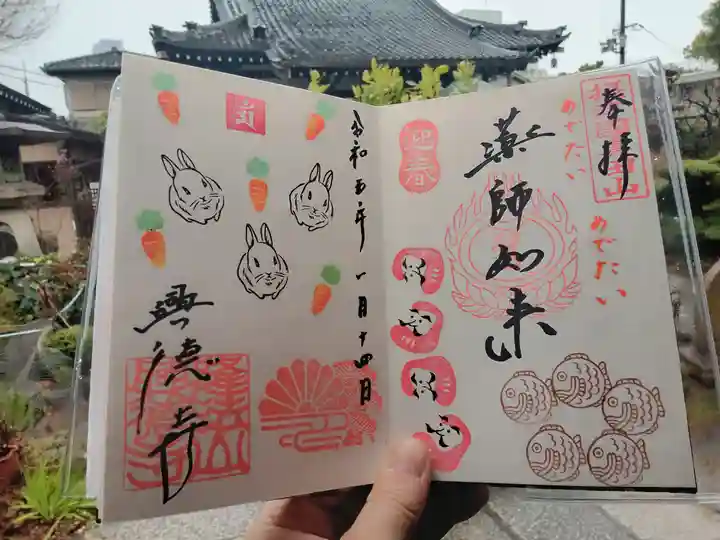 奉拝
めでたい
めでたい
薬師如来
迎春
令和五年一月十四日
興徳寺